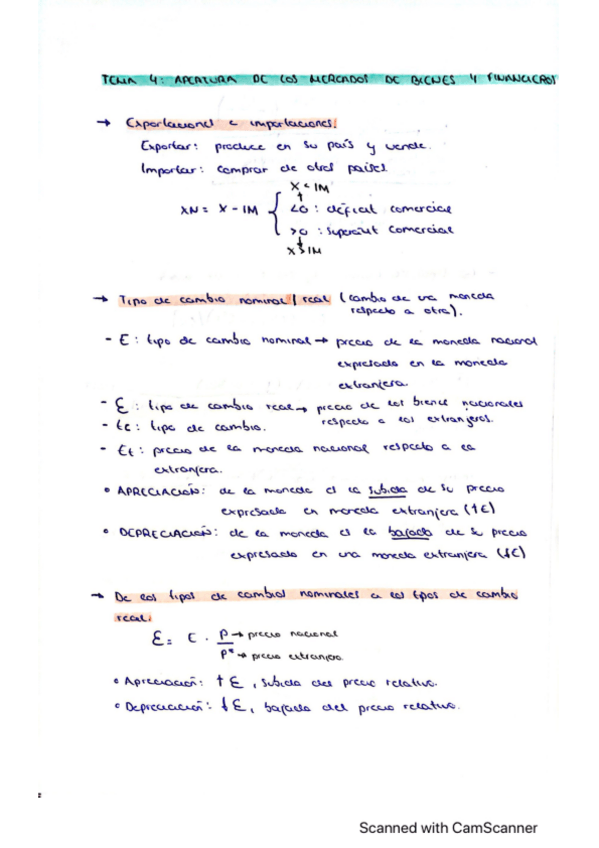 TEMA 4: APERTURA DE LOS MERCADOS DE BIENES Y FINANCIEROS
→ Exportaciones e importaciones:
Exportar: produce en su país y vende.
Importar: comprar de otros países
X < IM
↑
XN = X - IM { <0 : déficit comercial
>0 : superávit comercial
↓
X > IM
→ Tipo de cambio nominal / real (cambio de una moneda
respecto a otra).
- E : tipo de cambio nominal → precio de la moneda nacional
expresada en la moneda
extranjera.
- Ɛ : tipo de cambio real → precio de los bienes nacionales
respecto a los extranjeros.
- tc : tipo de cambio.
- Et : precio de la moneda nacional respecto a la
extranjera.
• APRECIACIÓN: de la moneda es la subida de su precio
expresada en moneda extranjera (↑E)
• DEPRECIACIÓN: de la moneda es la bajada de su precio
expresada en una moneda extranjera (↓E)
→ De los tipos de cambios nominales a los tipos de cambio
real:
Ɛ = E · P → precio nacional
P* → precio extranjero.
• Apreciación: ↑ Ɛ, subida del precio relativo.
• Depreciación: ↓ Ɛ, bajada del precio relativo.
Scanned with CamScanner